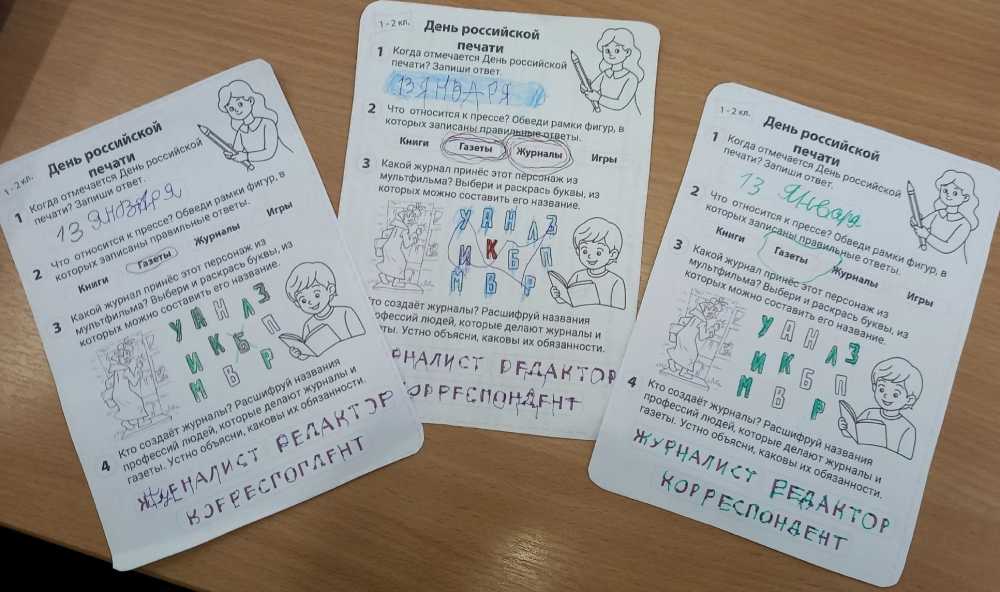 1 - 2 кл.
День российской
печати
1 Когда отмечается День российской
печати? Запиши ответ.
13 ЯНВАРЯ
2 Что относится к прессе? Обведи рамки фигур, в
которых записаны правильные ответы.
Книги Газеты Журналы Игры
3 Какой журнал принёс этот персонаж из
мультфильма? Выбери и раскрась буквы, из
которых можно составить его название.
У А Н Л З
И К Б П
М В Р
4 Кто создаёт журналы? Расшифруй названия
профессий людей, которые делают журналы и
газеты. Устно объясни, каковы их обязанности.
РЕДАКТОР
1 - 2 кл.
День российской
печати
1 Когда отмечается День российской
печати? Запиши ответ.
13 ЯНВАРЯ
2 Что относится к прессе? Обведи рамки фигур, в
которых записаны правильные ответы.
Книги Газеты Журналы Игры
3 Какой журнал принёс этот персонаж из
мультфильма? Выбери и раскрась буквы, из
которых можно составить его название.
У А Н Л З
И К Б П
М В Р
то создаёт журналы? Расшифруй названия
офессий людей, которые делают журналы и
еты. Устно объясни, каковы их обязанности.
РНАЛИСТ РЕДАКТОР
КОРРЕСПОНДЕНТ
1 - 2 кл.
День российской
печати
1 Когда отмечается День российской
печати? Запиши ответ.
13 Января
2 Что относится к прессе? Обведи рамки фигур, в
которых записаны правильные ответы.
Книги Газеты Журналы Игры
3 Какой журнал принёс этот персонаж из
мультфильма? Выбери и раскрась буквы, из
которых можно составить его название.
У А Н Л З
И К Б П
М В Р
4 Кто создаёт журналы? Расшифруй названия
профессий людей, которые делают журналы и
газеты. Устно объясни, каковы их обязанности.
ЖУРНАЛИСТ РЕДАКТОР
КОРРЕСПОНДЕНТ